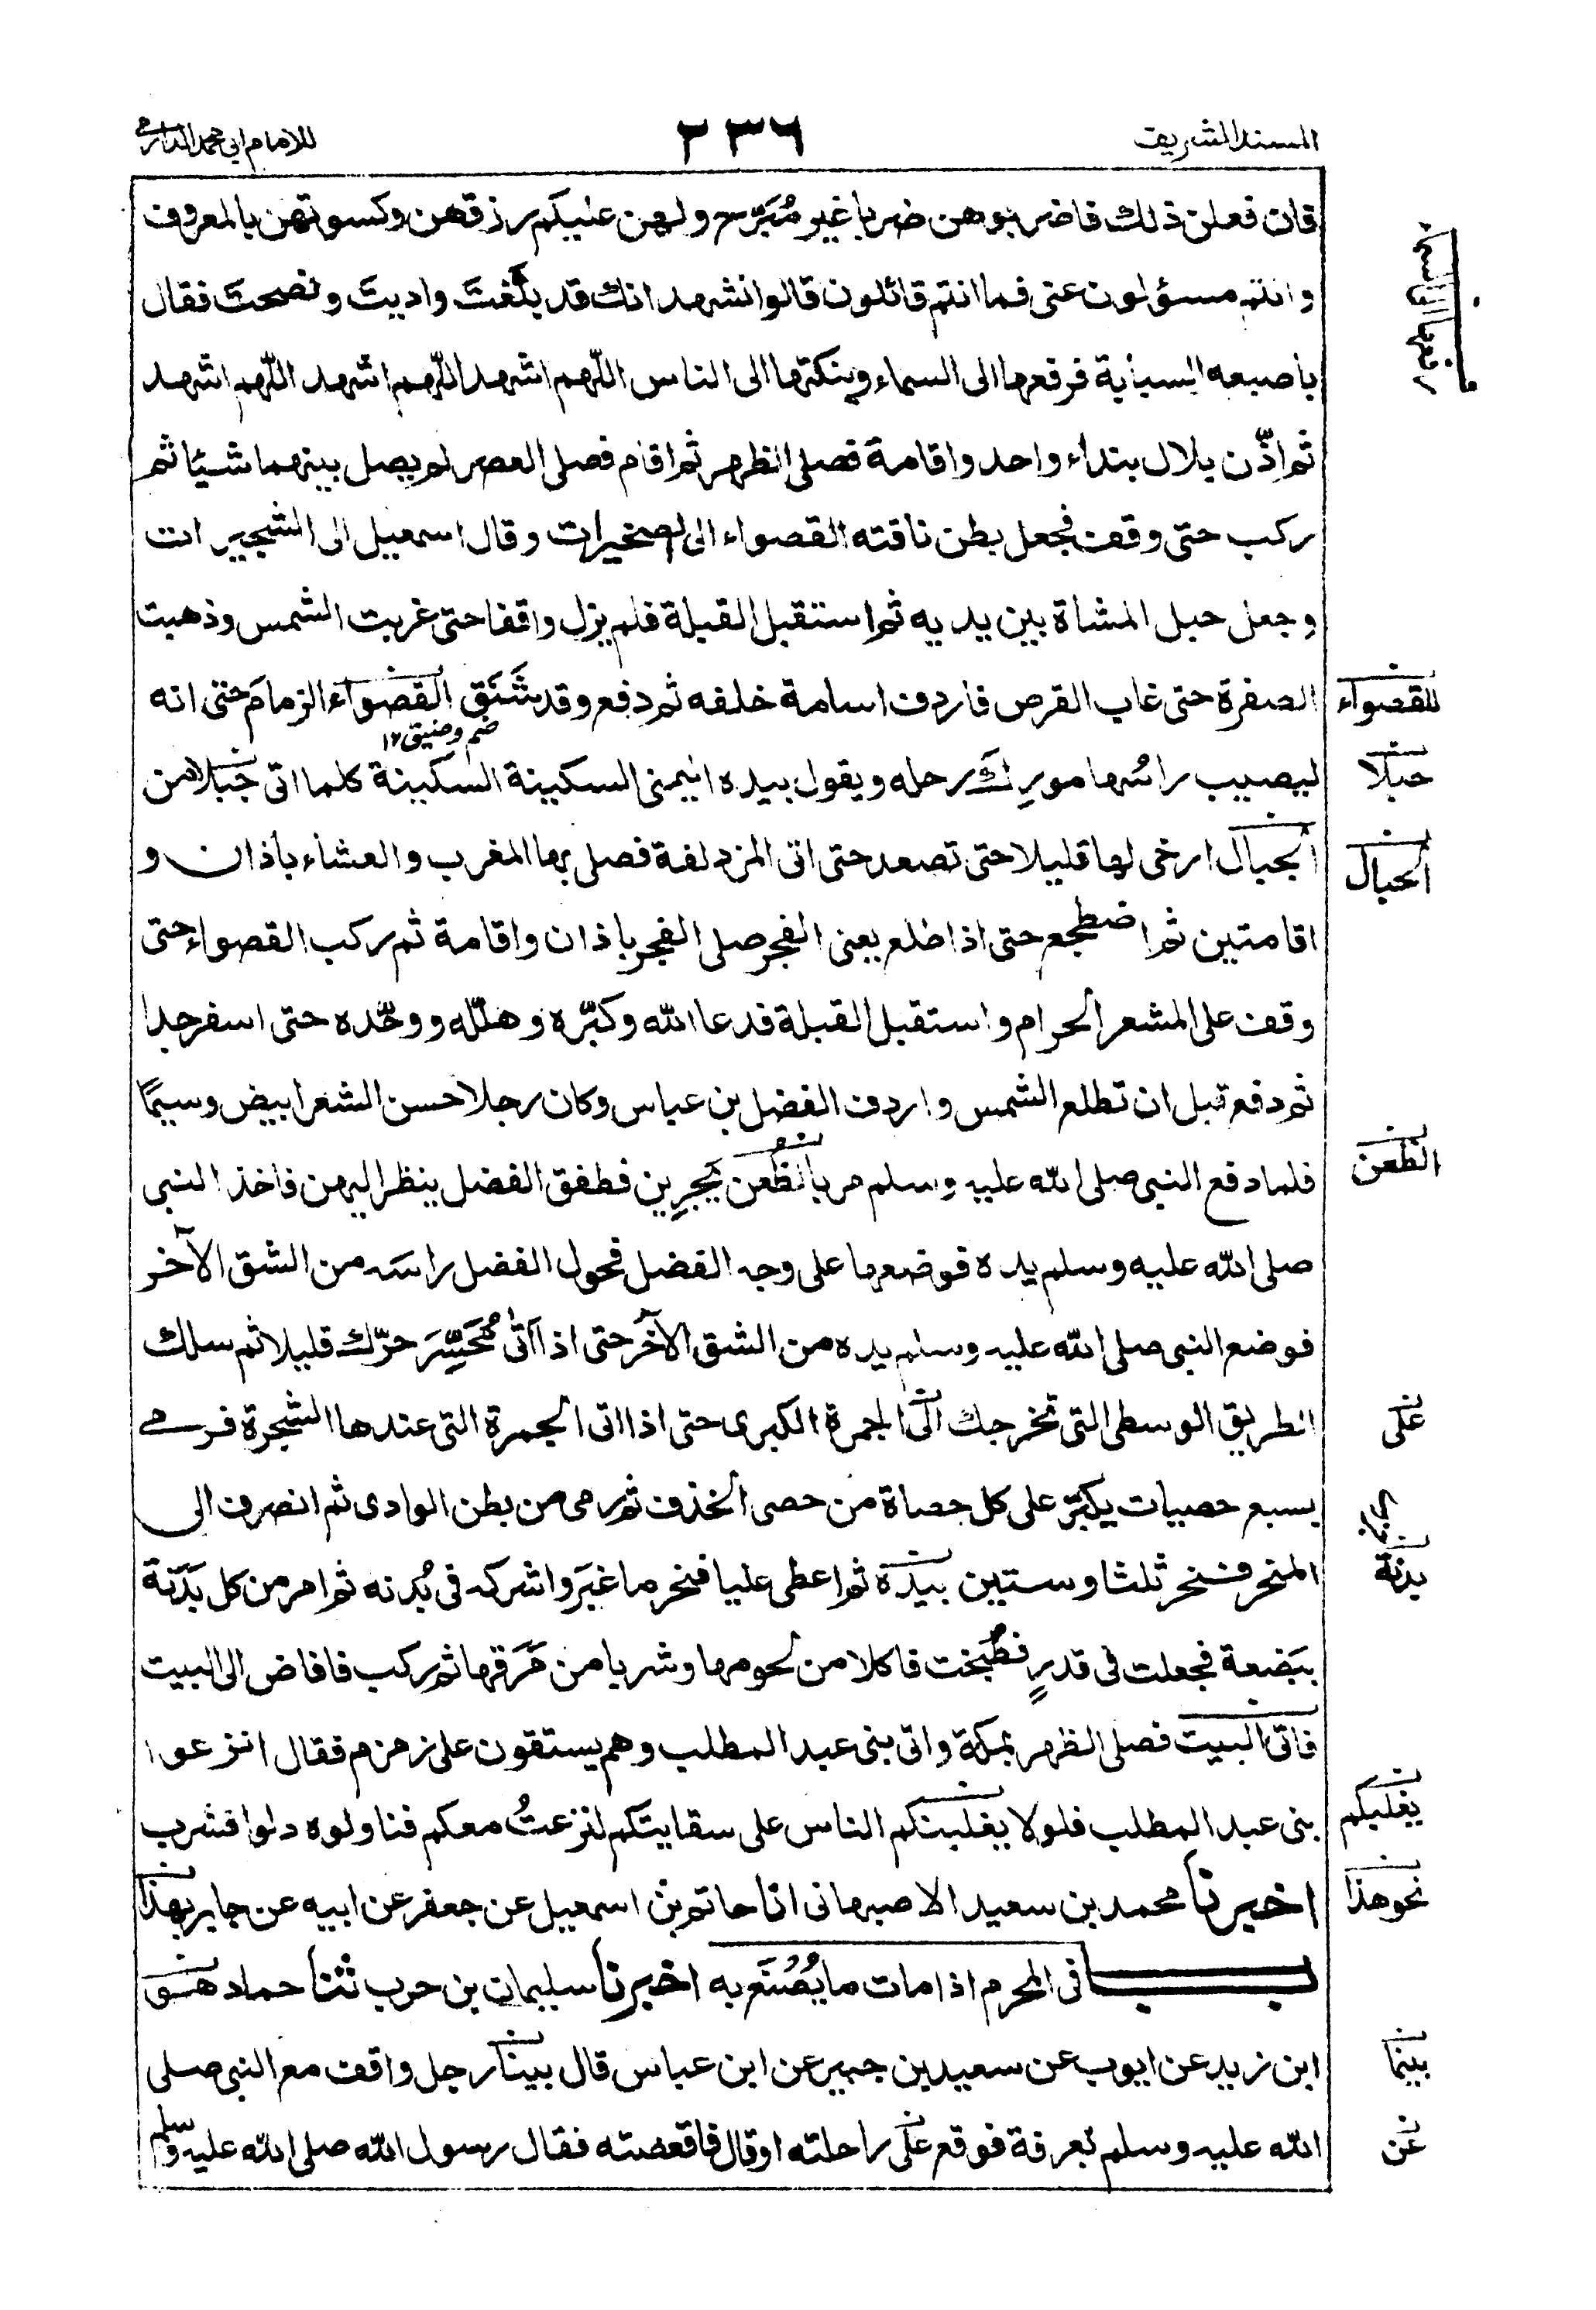 المسند الشريف
٢٣٦
للامام ابی محمد الدارمی
فان فعلن ذلك فاضربوهن ضربا غير مُبَرِّح ولهن عليكم رزقهن وكسوتهن بالمعروف
وانتم مسؤلون عنی فما انتم قائلون قالوا نشهد انك قد بلّغتَ واديتَ ونصحتَ فقال
باصبعه السبابة فرفعها الی السماء وينكتها الی الناس اللّهم اشهد اللّهم اشهد اللّهم اشهد
ثم اذّن بلال بنداء واحد واقامة فصلی الظهر ثم اقام فصلی العصر لم يصل بينهما شيئا ثم
ركب حتی وقف فجعل بطن ناقته القصواء الی الصخيرات وقال اسمعيل الی الشجيرات
وجعل حبل المشاة بين يديه ثم استقبل القبلة فلم يزل واقفا حتی غربت الشمس وذهبت
الصفرة حتی غاب القرص فاردف اسامة خلفه ثم دفع وقد شَنَق القصواء الزمام حتی انه
للقصواء
ضم وضيق ١٢
ليصيب راسُها مورِك رحله ويقول بيده اليمنی السكينة السكينة كلما اتی جَبَلا من
حبلا
الجبال ارخی لها قليلا حتی تصعد حتی اتی المزدلفة فصلی بها المغرب والعشاء باذان و
الحبال
اقامتين ثم اضطجع حتی اذا طلع يعنی الفجر صلی الفجر باذان واقامة ثم ركب القصواء حتی
وقف علی المشعر الحرام واستقبل القبلة فدعا الله وكبّره وهلّله ووحّده حتی اسفر جدا
ثم دفع قبل ان تطلع الشمس واردف الفضل بن عباس وكان رجلا حسن الشعر ابيض وسيمًا
فلما دفع النبی صلی الله عليه وسلم مر بالظُعن يجرِين فطفق الفضل ينظر اليهن فاخذ النبی
الظعن
صلی الله عليه وسلم يده فوضعها علی وجه الفضل فحول الفضل راسه من الشق الآخر
فوضع النبی صلی الله عليه وسلم يده من الشق الآخر حتی اذا اتی مُحَسِّرَ حرّك قليلا ثم سلك
الطريق الوسطی التی تخرجك الی الجمرة الكبری حتی اذا اتی الجمرة التی عندها الشجرة فرمی
علی
بسبع حصيات يكبّر علی كل حصاة من حصی الخذف ثم رمی من بطن الوادی ثم انصرف الی
المنحر فنحر ثلثا وستين بيده ثم اعطی عليا فنحر ما غَبَر واشركه فی بُدنه ثم امر من كل بَدَنة
بدنة
ببَضعة فجعلت فی قدرٍ فطُبخت فاكلا من لحومها وشربا من مَرَقها ثم ركب فافاض الی البيت
فاتی البيت فصلی الظهر بمكة واتی بنی عبد المطلب وهم يستقون علی زمزم فقال انزعوا
بنی عبد المطلب فلولا يغلبنكم الناس علی سقايتكم لنزعتُ معكم فناولوه دلوا فشرب
يغلبكم
اخبرنا محمد بن سعيد الاصبهانی انا حاتم بن اسمعيل عن جعفر عن ابيه عن جابر بهذا
نحو هذا
بـــاب فی المحرم اذا مات ما يُصْنَع به اخبرنا سليمان بن حرب ثنا حماد هو
ابن زيد عن ايوب عن سعيد بن جبير عن ابن عباس قال بينا رجل واقف مع النبی صلی
بينما
الله عليه وسلم بعرفة فوقع علی راحلته او قال فاقعصته فقال رسول الله صلی الله عليه وسلم
عن